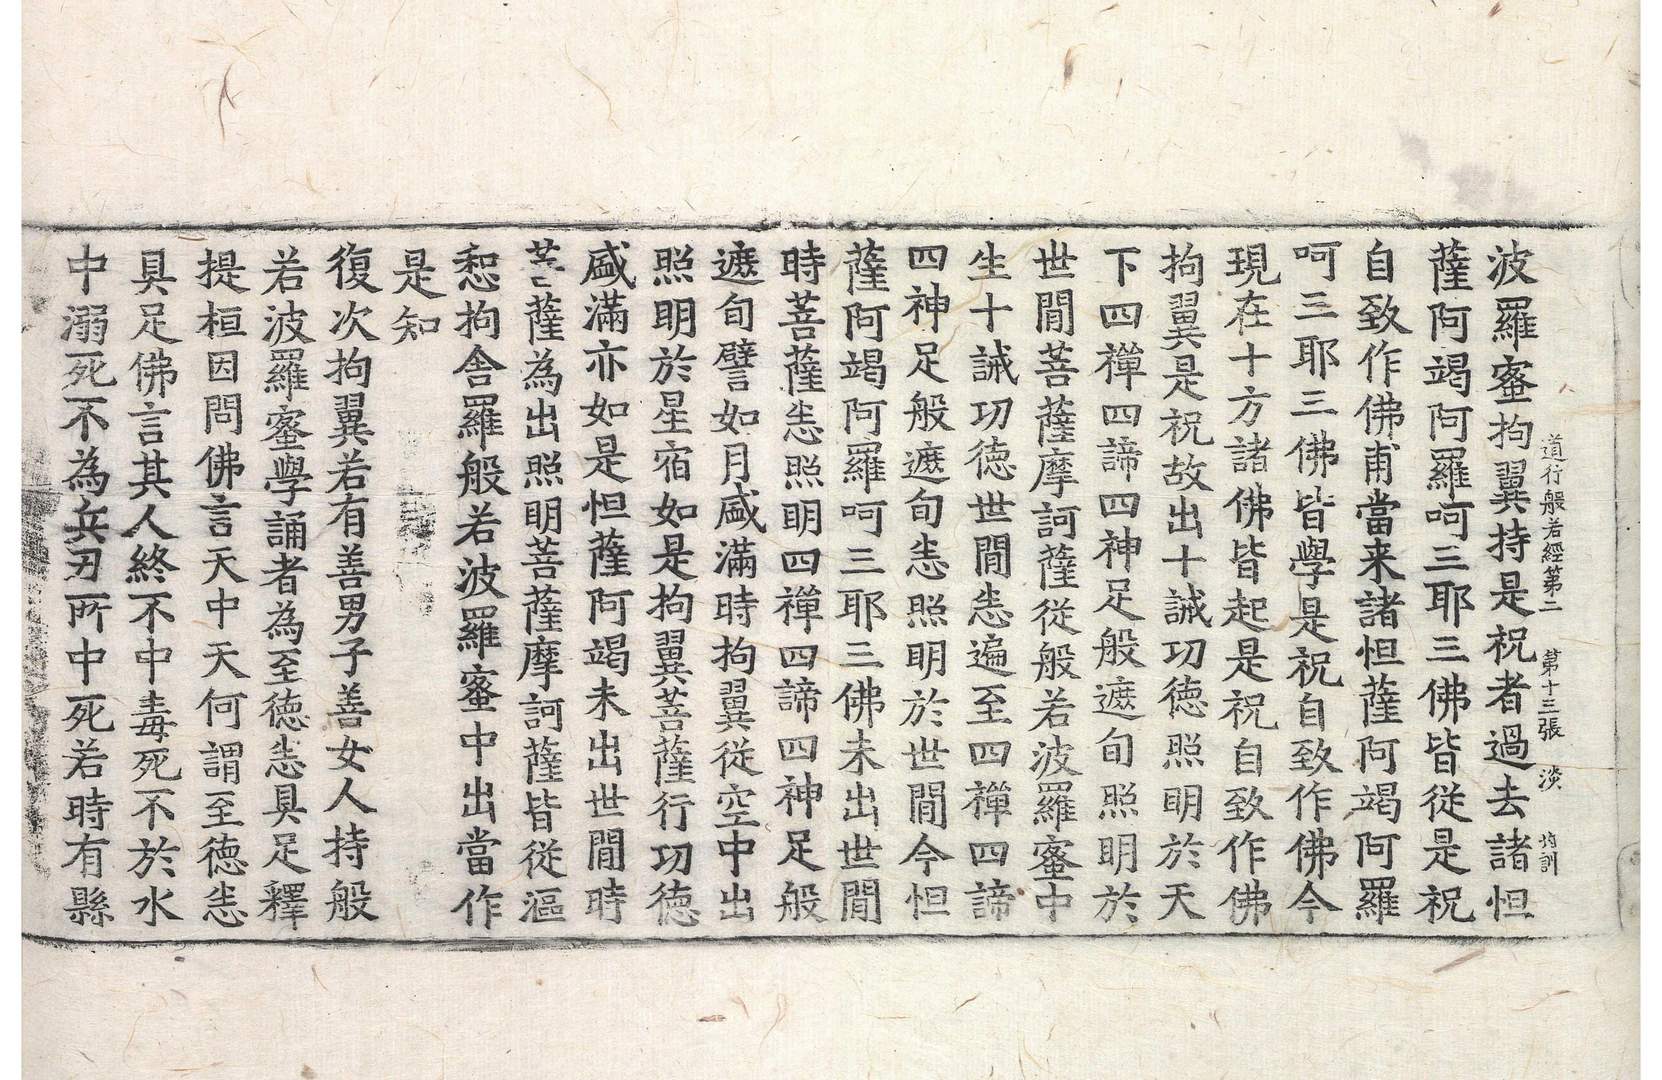 道行般若經第二 第十三張 淡
波羅蜜拘翼持是祝者過去諸怛
薩阿竭阿羅呵三耶三佛皆從是祝
自致作佛甫當来諸怛薩阿竭阿羅
呵三耶三佛皆學是祝自致作佛今
現在十方諸佛皆起是祝自致作佛
拘翼是祝故出十誡功德照明於天
下四禪四諦四神足般遮旬照明於
世間菩薩摩訶薩從般若波羅蜜中
生十誡功德世間悉遍至四禪四諦
四神足般遮旬悉照明於世間今怛
薩阿竭阿羅呵三耶三佛未出世間
時菩薩悉照明四禪四諦四神足般
遮旬譬如月盛滿時拘翼從空中出
照明於星宿如是拘翼菩薩行功德
盛滿亦如是怛薩阿竭未出世間時
菩薩為出照明菩薩摩訶薩皆從漚
惒拘舍羅般若波羅蜜中出當作
是知
復次拘翼若有善男子善女人持般
若波羅蜜學誦者為至德悉具足釋
提桓因問佛言天中天何謂至德悉
具足佛言其人終不中毒死不於水
中溺死不為兵刃所中死若時有縣